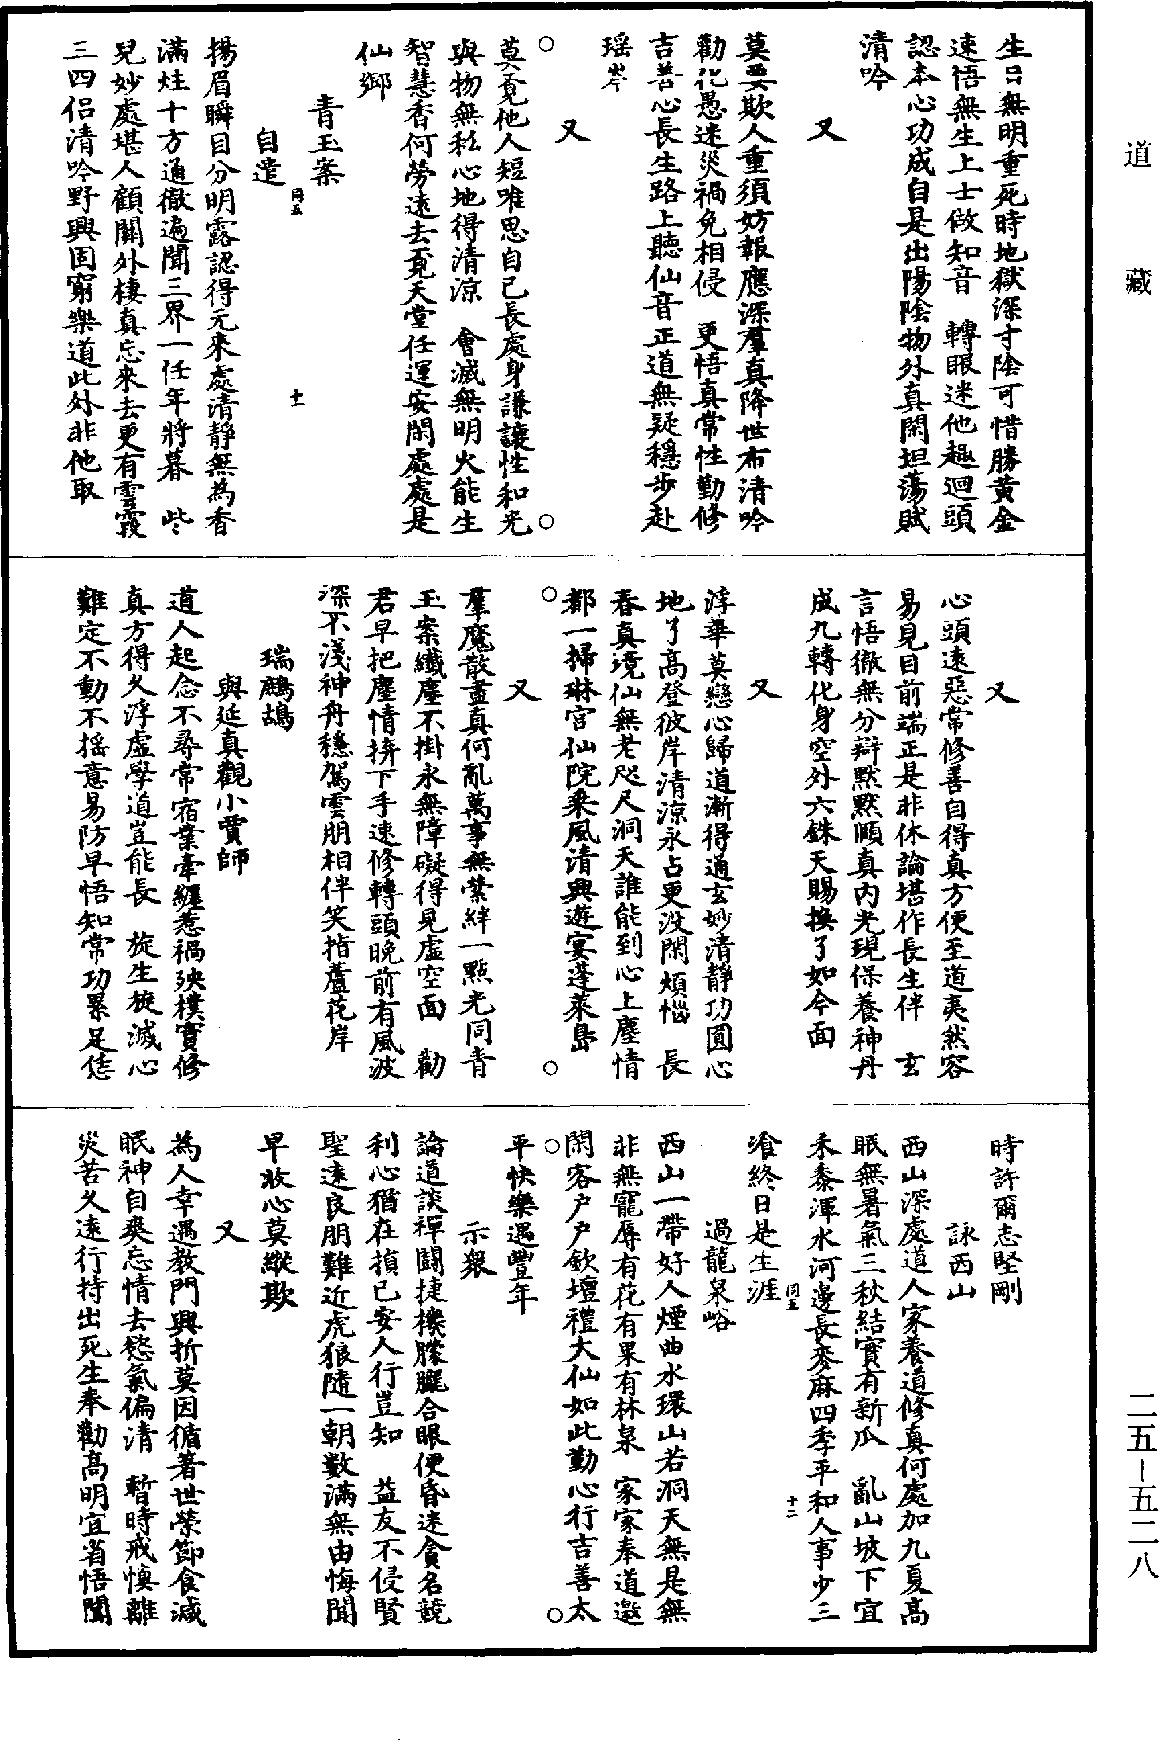 道藏
生日無明重死時地獄深寸陰可惜勝黃金
速悟無生上士做知音　轉眼迷他趣迴頭
認本心功成自是出陽陰物外真閑坦蕩賦
清吟
又
莫要欺人重須妨報應深羣真降世布清吟
勸化愚迷災禍免相侵　更悟真常性勤修
吉善心長生路上聽仙音正道無疑穩步赴
瑤岑
又
莫覓他人短唯思自己長處身謙讓性和光
與物無私心地得清涼　會滅無明火能生
智慧香何勞遠去覓天堂任運安閑處處是
仙鄉
青玉案
自遣
同五
十一
揚眉瞬目分明露認得元來處清靜無為香
滿炷十方通徹遍聞三界一任年將暮　些
兒妙處堪人顧關外棲真忘來去更有雲霞
三四侶清吟野興固窮樂道此外非他取
又
心頭遠惡常修善自得真方便至道夷然容
易見目前端正是非休論堪作長生伴　玄
言悟徹無分辯默默頤真內光現保養神丹
成九轉化身空外六銖天賜換了如今面
又
浮華莫戀心歸道漸得通玄妙清靜功圓心
地了高登彼岸清涼永占更没閑煩惱　長
春真境仙無老咫尺洞天誰能到心上塵情
都一掃琳宮仙院乘風清興遊宴蓬萊島
又
羣魔散盡真何亂萬事無縈絆一點光同青
玉案纖塵不掛永無障礙得見虛空面　勸
君早把塵情拚下手速修轉頭晚前有風波
深不淺神舟穩駕雲朋相伴笑指蘆花岸
瑞鷓鴣
與延真觀小賈師
道人起念不尋常宿業牽纏惹禍殃樸實修
真方得久浮虛學道豈能長　旋生旋滅心
難定不動不搖意易防早悟知常功累足恁
時許爾志堅剛
詠西山
西山深處道人家養道修真何處加九夏高
眠無暑氣三秋結實有新瓜　亂山坡下宜
禾黍渾水河邊長麥麻四季平和人事少三
飡終日是生涯
同五
十二
過龍泉峪
西山一帶好人煙曲水環山若洞天無是無
非無寵辱有花有果有林泉　家家奉道邀
閑客戶戶欽壇禮大仙如此勤心行吉善太
平快樂遇豐年
示衆
論道談禪鬪捷機朦朧合眼便昏迷貪名競
利心猶在損己安人行豈知　益友不侵賢
聖遠良朋難近虎狼隨一朝數滿無由悔聞
早收心莫縱欺
又
為人幸遇教門興折莫因循著世榮節食減
眠神自爽忘情去慾氣偏清　暫時戒慎離
災苦久遠行持出死生奉勸高明宜省悟聞
二五—五二八